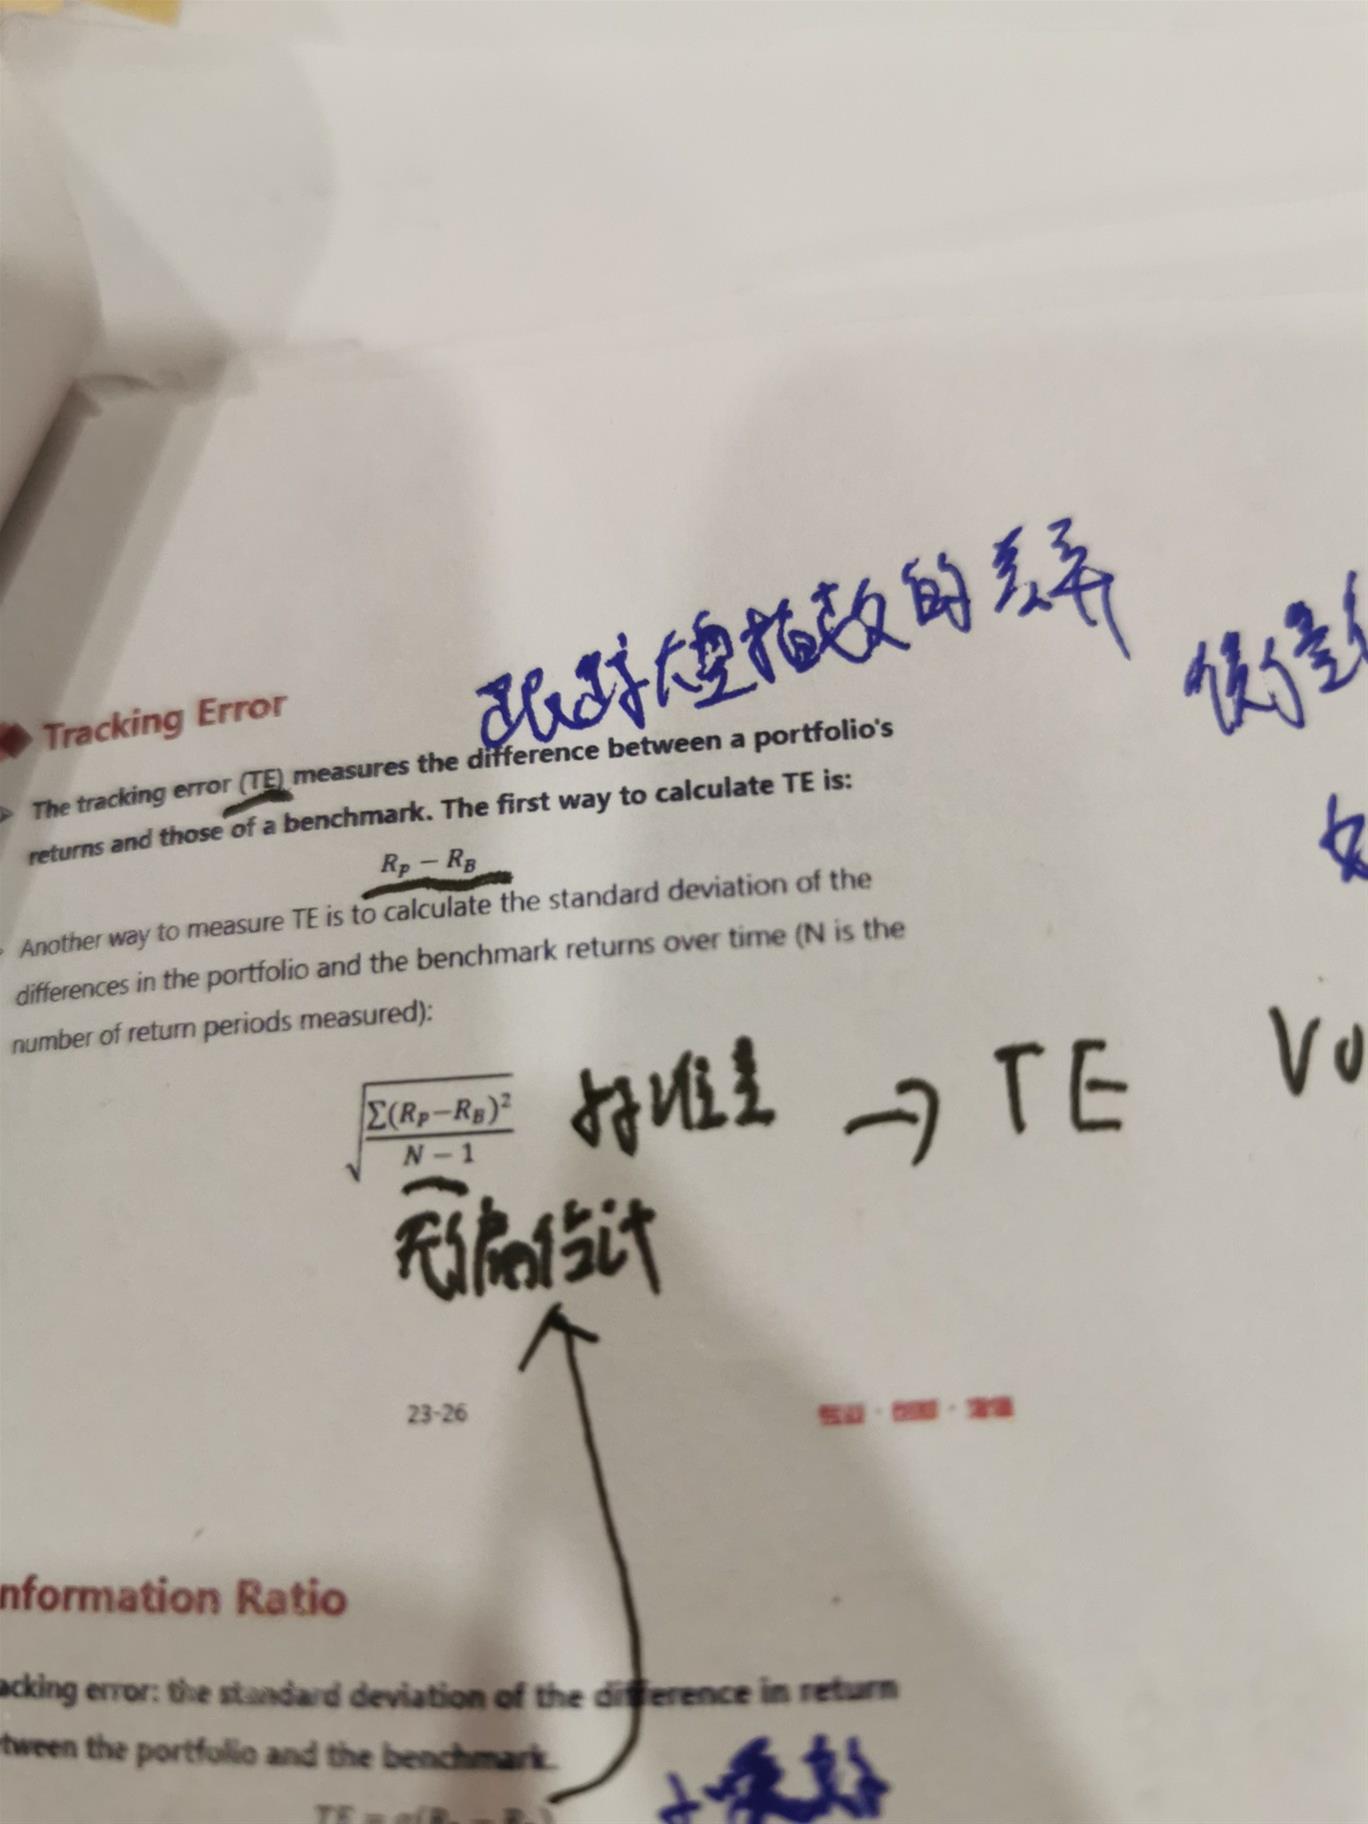 跟对大盘指数的差异
Tracking Error
The tracking error (TE) measures the difference between a portfolio's
returns and those of a benchmark. The first way to calculate TE is:
R_P − R_B
Another way to measure TE is to calculate the standard deviation of the
differences in the portfolio and the benchmark returns over time (N is the
number of return periods measured):
√(Σ(R_P−R_B)²/(N − 1)) 标准差 → TE
无偏估计
23-26
nformation Ratio
acking error: the standard deviation of the difference in return
tween the portfolio and the benchmark.